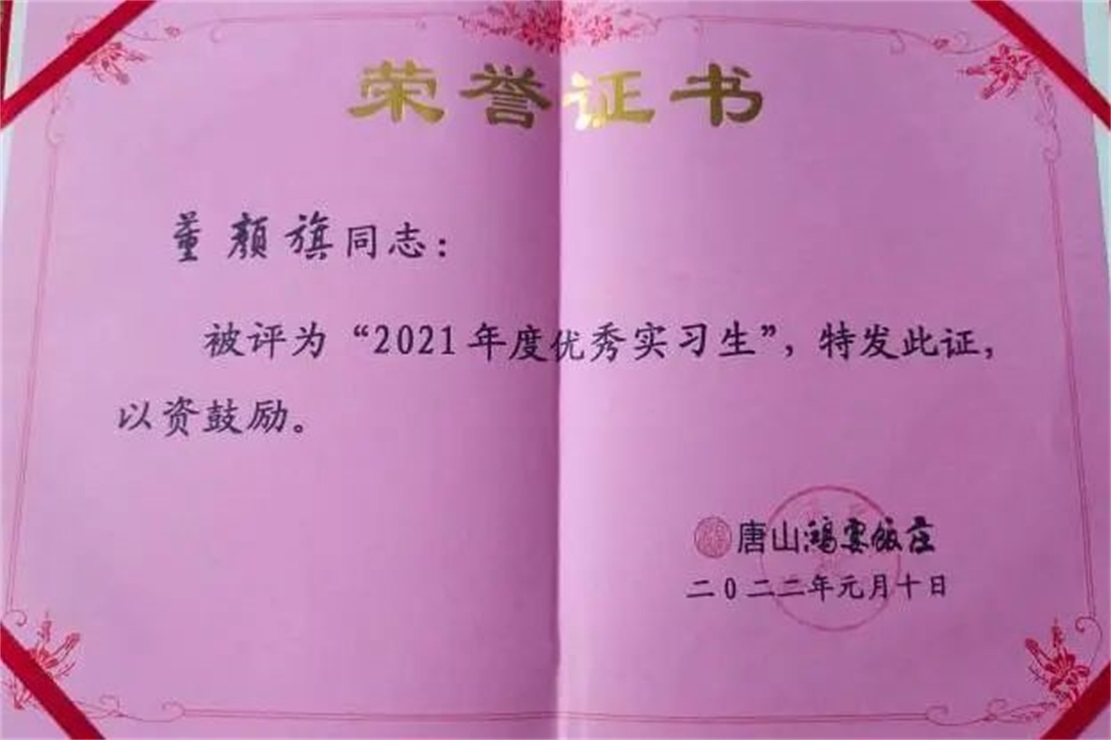 荣誉证书
董颜旗同志：
被评为“2021年度优秀实习生”，特发此证，
以资鼓励。
唐山鸿宴饭庄
二0二二年元月十日